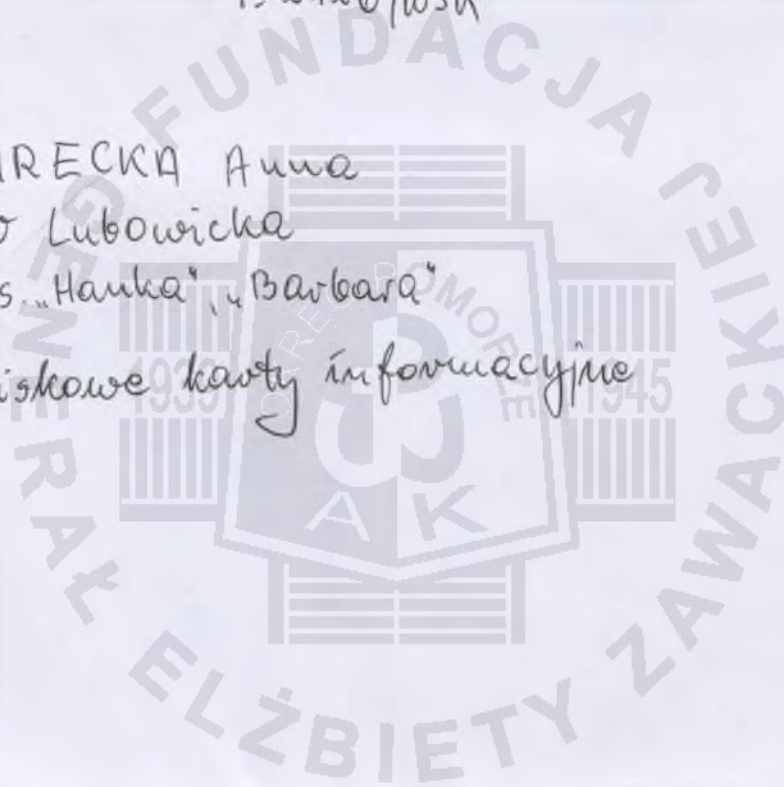 RECKA Anna
Lubowicka
"Hanka", "Barbara"
karty informacyjne
FUNDACJA GENERAŁ ELŻBIETY ZAWACKIEJ
OKRĘG POMORZE
1939 1945
AK